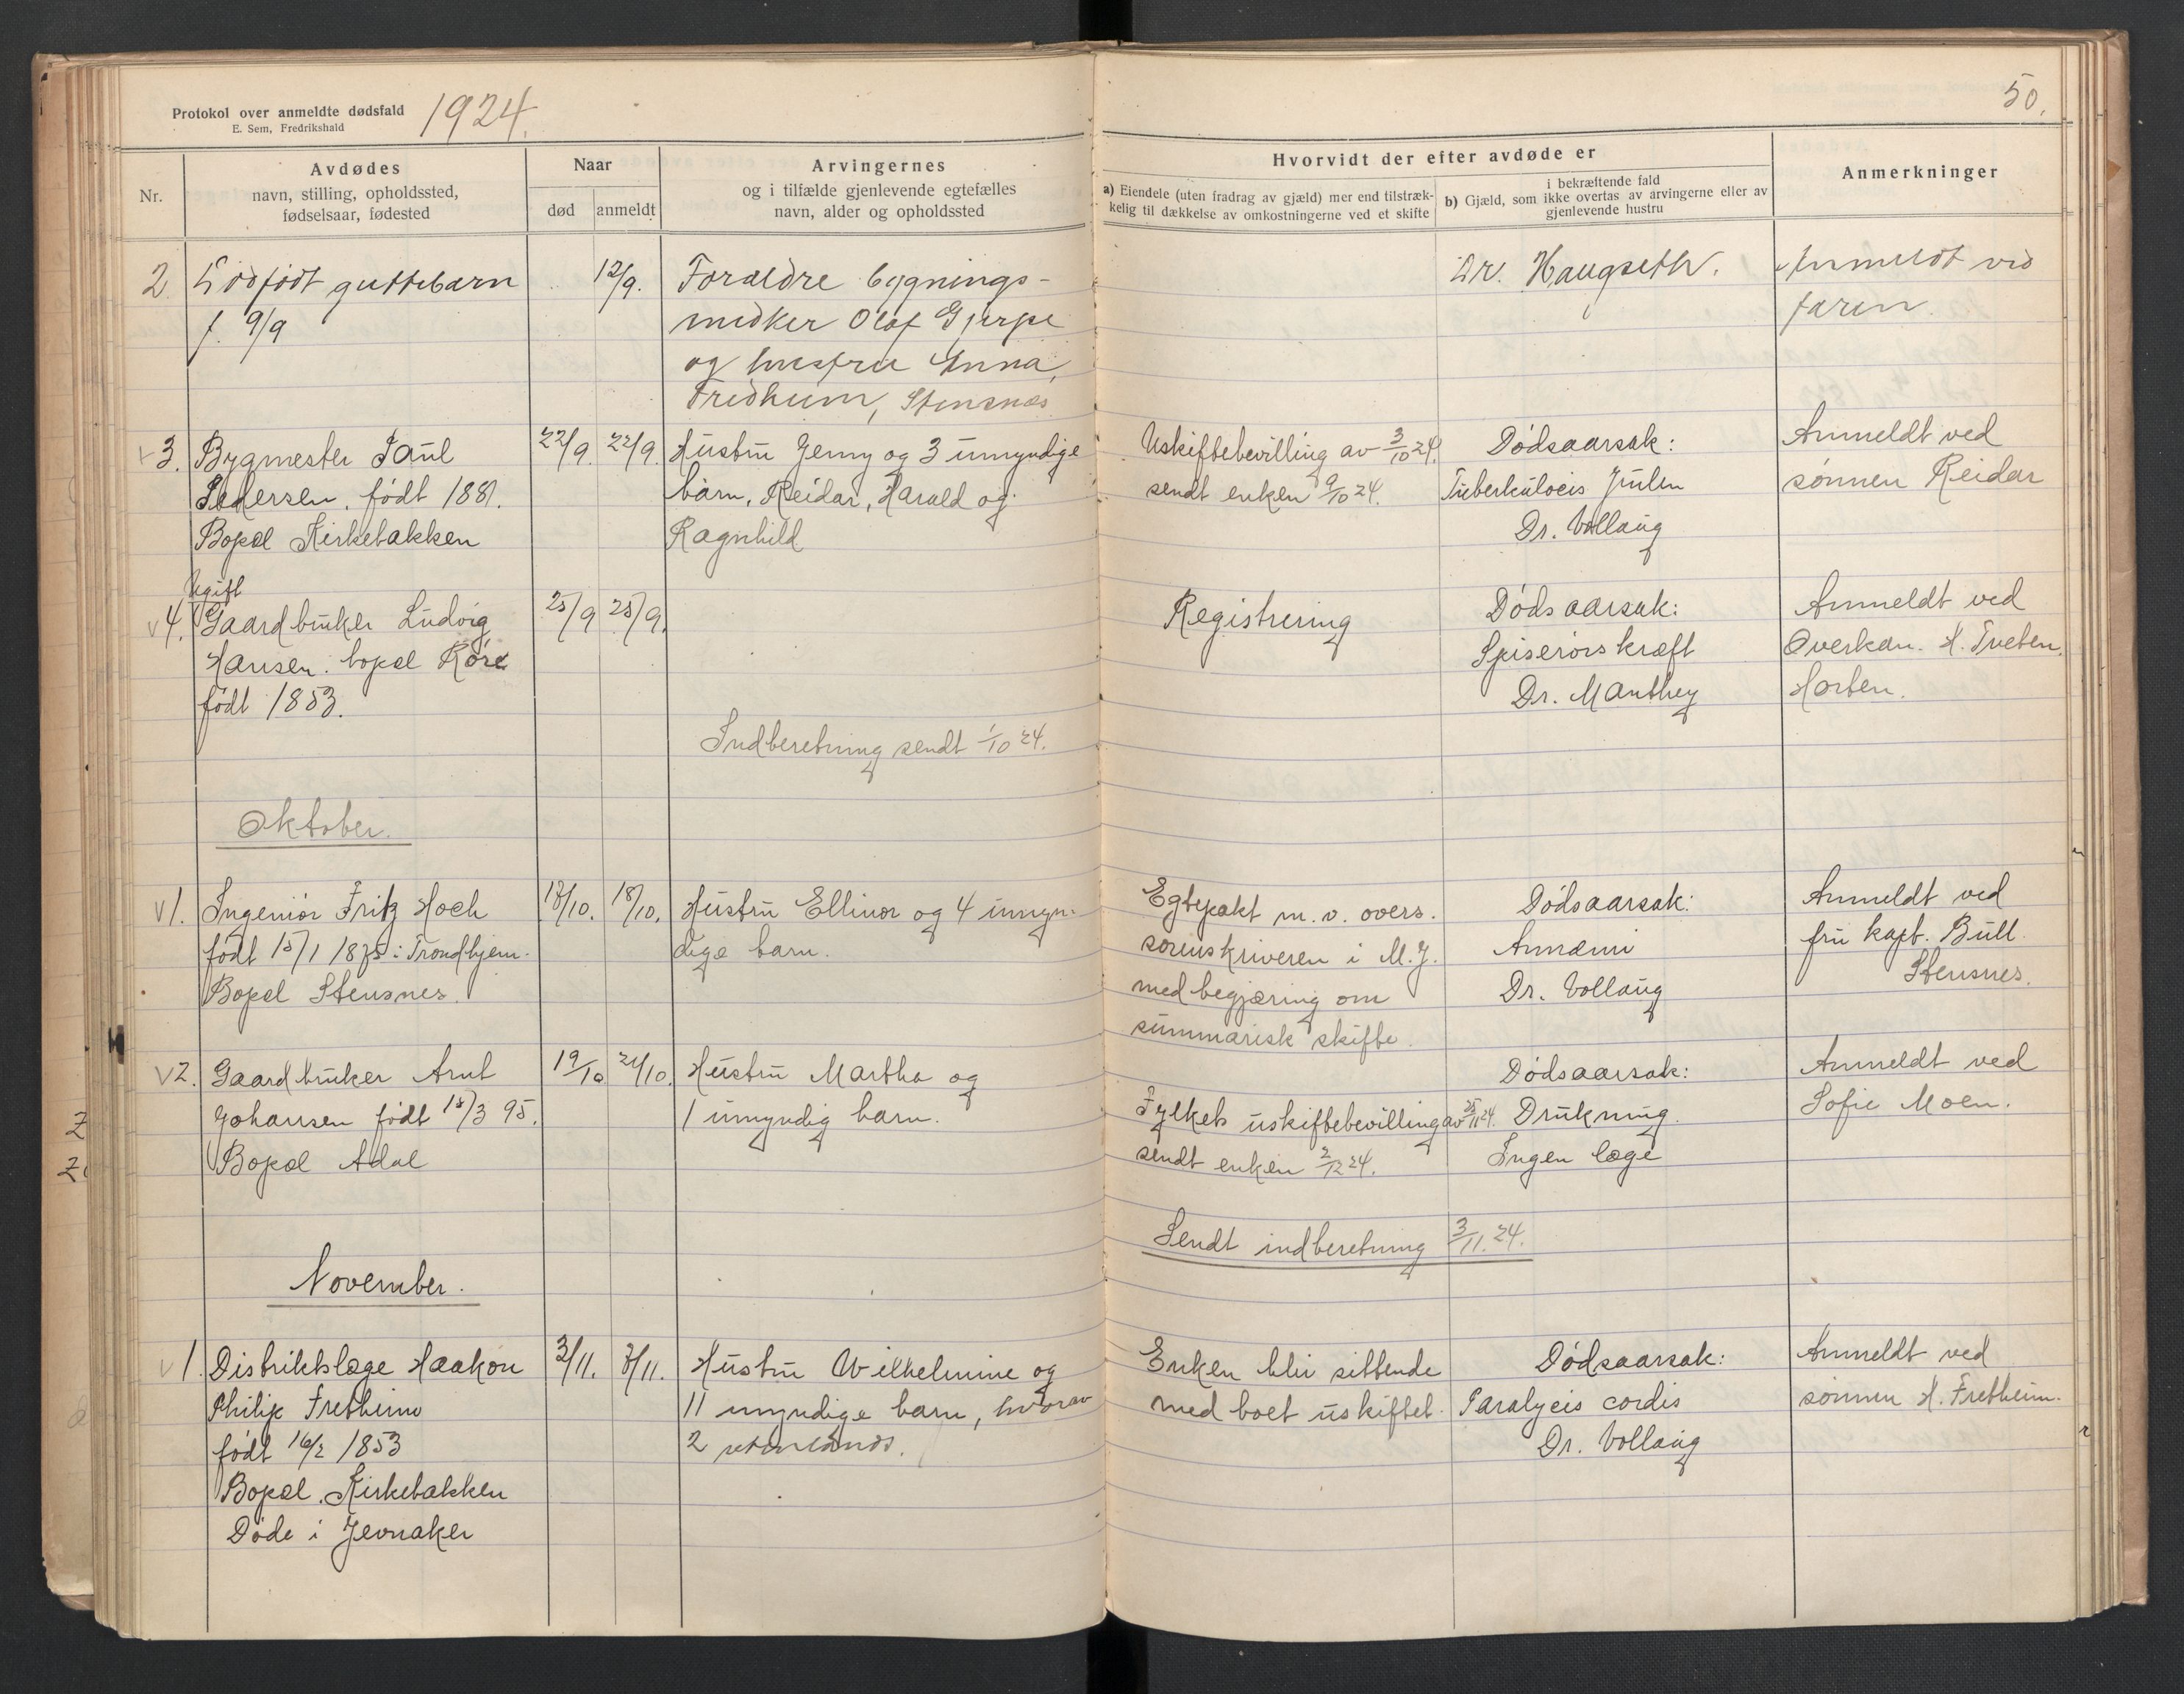 Protokol over anmeldte dødsfald 1924.
E. Sem, Fredrikshald
50.
Nr.
Avdødes
navn, stilling, opholdssted,
fødselsaar, fødested
Naar
død
anmeldt
Arvingernes
og i tilfælde gjenlevende egtefælles
navn, alder og opholdssted
Hvorvidt der efter avdøde er
a) Eiendele (uten fradrag av gjæld) mer end tilstræk-
kelig til dækkelse av omkostningerne ved et skifte
i bekræftende fald
b) Gjæld, som ikke overtas av arvingerne eller av
gjenlevende hustru
Anmerkninger
2. Dødfødt guttebarn
f. 9/9
12/9.
Foreldre bygnings-
snedker Olaf Gjerpe
og hustru Anna,
Fredheim, Stensnes
Dr. Haugseth.
Anmeldt ved
faren.
v 3. Bygmester Paul
Pedersen, født 1881.
Bopæl Kirkebakken
22/9. 22/9.
Hustru Jenny og 3 umyndige
barn, Reidar, Harald og
Ragnhild
Uskiftebevilling av 3/10 24.
sendt enken 9/10 24.
Dødsaarsak:
Tuberkuloeis
Dr. Vollaug
Anmeldt ved
sønnen Reidar
Ugift
v 4. Gaardbruker Ludvig
Hansen. bopæl Røre
født 1853.
25/9 25/9.
Indberetning sendt 1/10 24.
Registrering
Dødsaarsak:
Spiserørskræft
Dr. Manthey
Anmeldt ved
Overkan. H. Tveten.
Horten.
Oktober.
v 1. Ingeniør Fritz Hoch
født 15/1 1875 i Trondhjem.
Bopæl Stensnes.
18/10.
Hustru Ellinor og 4 umyn-
dige barn.
Egtepakt m. v. overs.
sorenskriveren i M. J.
med begjæring om
summarisk skifte.
Dødsaarsak:
Annæmi
Dr. Vollaug
Anmeldt ved
fru kapt. Bull.
Stensnes.
v 2. Gaardbruker Arnt
Johansen født 15/3 95.
Bopæl Adal
19/10 21/10.
Hustru Martha og
1 umyndig barn.
Fylkets uskiftebevilling av 25/11 24.
sendt enken 2/12 24.
Dødsaarsak:
Drukning.
Ingen læge
Anmeldt ved
Sofie Moen.
Sendt indberetning 3/11. 24.
November.
v 1. Distriktslæge Haakon
Philip Fretheim
født 16/2 1853
Bopæl. Kirkebakken
Døde i Jevnaker
3/11. 3/11.
Hustru Wilhelmine og
11 umyndige barn, hvorav
2 utenlands.
Enken blir sittende
med boet uskiftet.
Dødsaarsak:
Paralyeis cordis
Dr. Vollaug
Anmeldt ved
sønnen H. Fretheim.